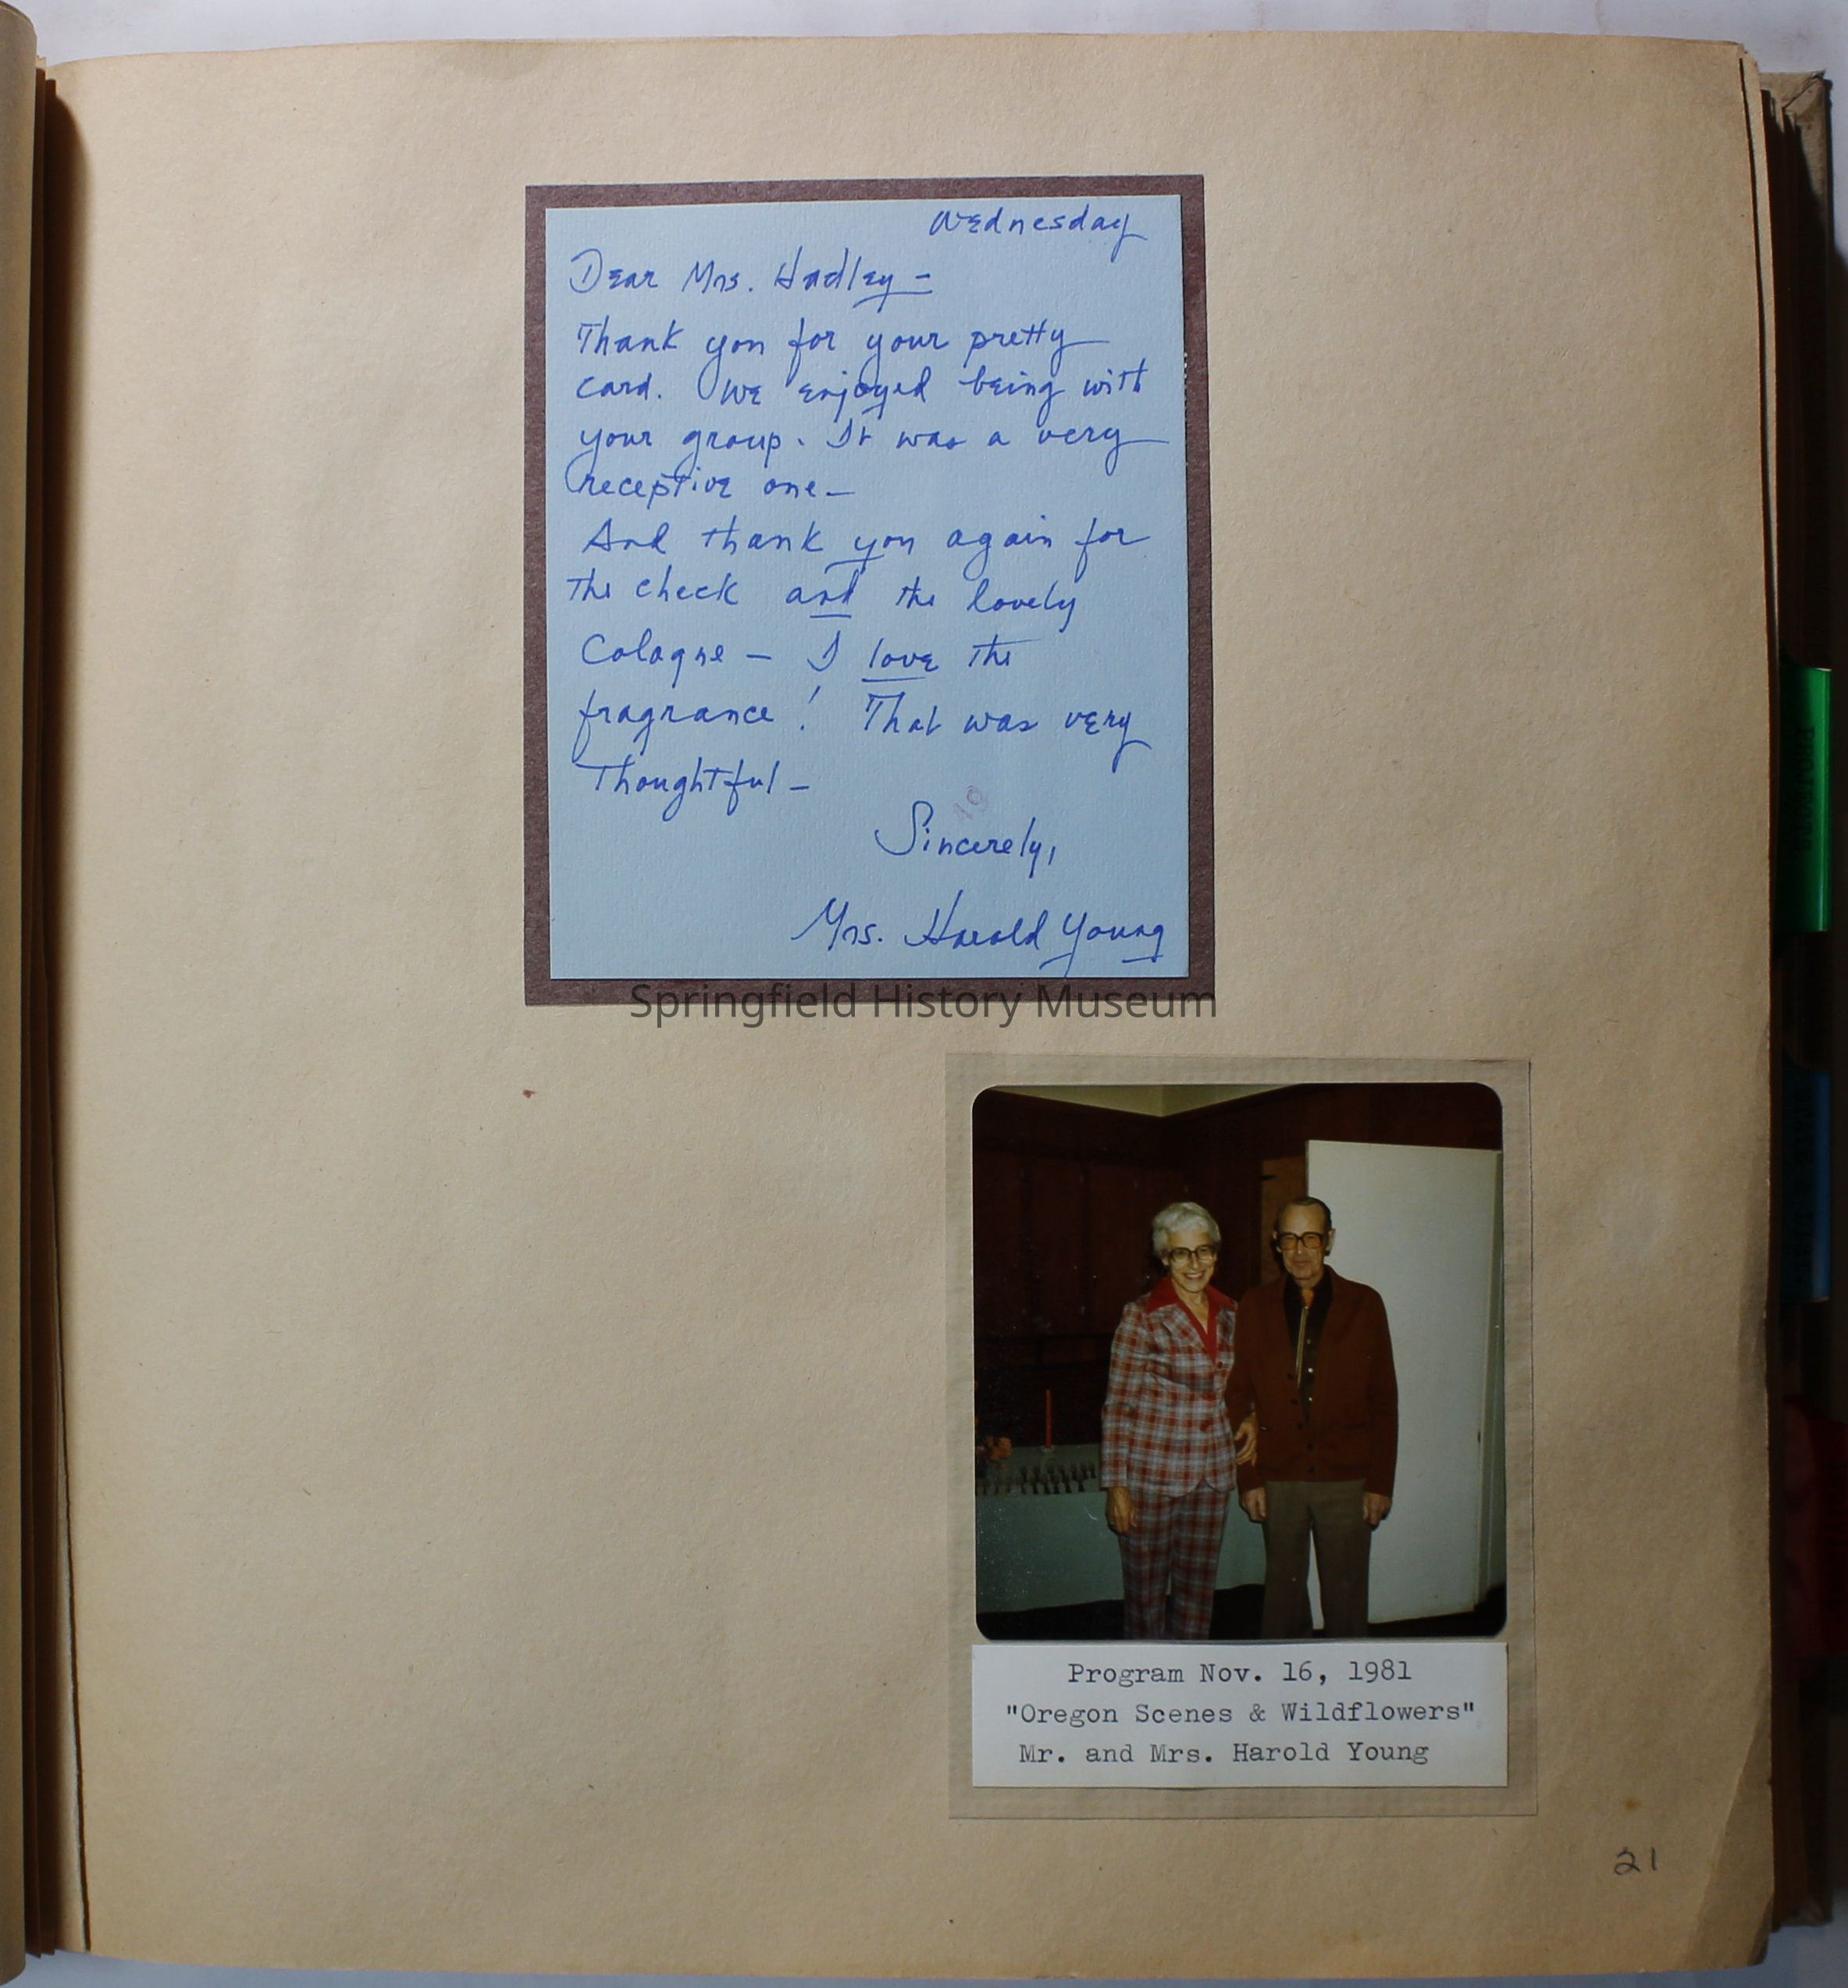 Wednesday
Dear Mrs. Hadley -
Thank you for your pretty
card. We enjoyed being with
your group. It was a very
receptive one -
And thank you again for
the check and the lovely
Cologne - I love the
fragrance! That was very
Thoughtful -
Sincerely,
Mrs. Harold Young
Springfield History Museum
Program Nov. 16, 1981
"Oregon Scenes & Wildflowers"
Mr. and Mrs. Harold Young
21